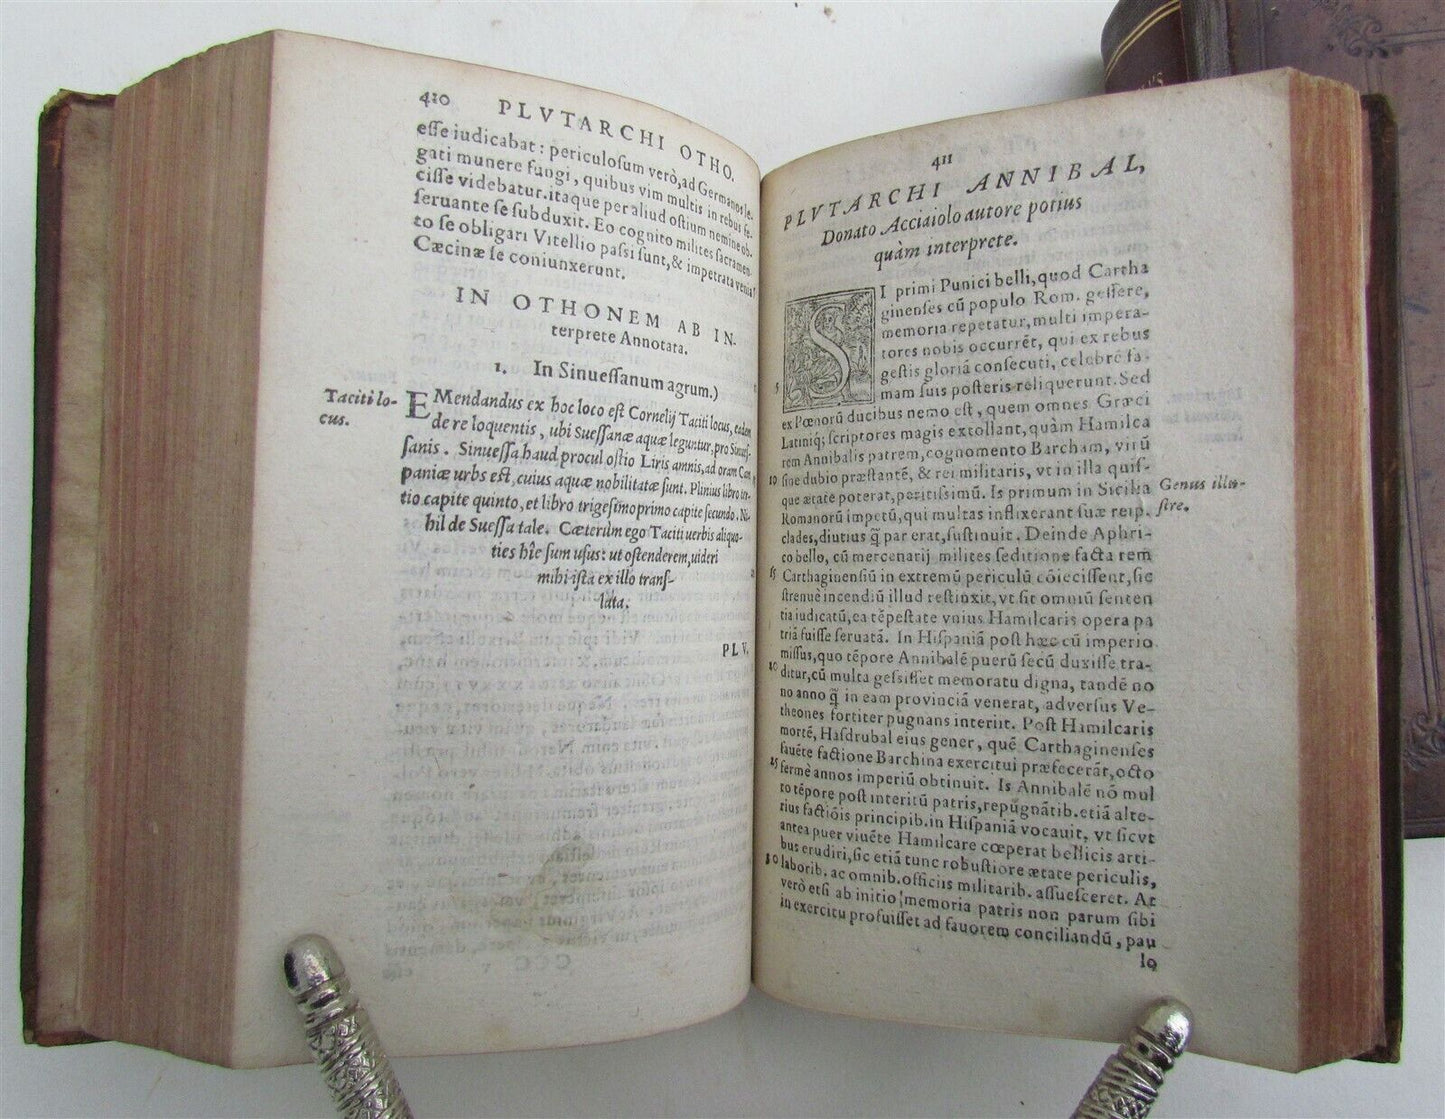 410 PLVTARCHI OTHO.
eſſe iudicabat: periculoſum verò, ad Germanos le-
gati munere fungi, quibus vim multis in rebus fe-
ciſſe videbatur. itaque per aliud oſtium nemine ob-
ſeruante ſe ſubduxit. Eo cognito milites ſacramen-
to ſe obligari Vitellio paſſi ſunt, & impetrata venia
Cæcinæ ſe coniunxerunt.
IN OTHONEM AB IN-
terprete Annotata.
1. In Sinueſſanum agrum.)
Taciti lo-
cus.
EMendandus ex hoc loco eſt Cornelij Taciti locus, eadem
de re loquentis, ubi Sueſſanæ aquæ leguntur, pro Sinueſ-
ſanis. Sinueſſa haud procul oſtio Liris amnis, ad oram Cam
paniæ urbs eſt, cuius aquæ nobilitatæ ſunt. Plinius libro ter-
tio capite quinto, et libro trigeſimoprimo capite ſecundo. Ni-
hil de Sueſſa tale. Cæterùm ego Taciti uerbis aliquo-
ties hîc ſum uſus: ut oſtenderem, uideri
mihi iſta ex illo tranſ-
lata.
PLV.
411
PLVTARCHI ANNIBAL,
Donato Acciaiolo autore potius
quàm interprete.
SI primi Punici belli, quod Cartha
ginenſes cū populo Rom. geſſere,
memoria repetatur, multi impera-
tores nobis occurrēt, qui ex rebus
5 geſtis gloriā conſecuti, celebrē fa-
mam ſuis poſteris reliquerunt. Sed
ex Pœnorū ducibus nemo eſt, quem omnes Græci
Latiniq; ſcriptores magis extollant, quàm Hamilca
rem Annibalis patrem, cognomento Barcham, virū
10 ſine dubio præſtantē, & rei militaris, vt in illa quiſ-
que ætate poterat, peritiſſimū. Is primum in Sicilia
Genus illu-
ſtre.
Romanorū impetū, qui multas inflixerant ſuæ reip.
clades, diutius q̃ par erat, ſuſtinuit. Deinde Aphri-
co bello, cū mercenarij milites ſeditione facta rem
15 Carthaginenſiū in extremū periculū cōieciſſent, ſic
ſtrenuè incendiū illud reſtinxit, vt ſit omniū ſenten
tia iudicatū, ea tēpeſtate vnius Hamilcaris opera pa
triā fuiſſe ſeruatā. In Hiſpaniā poſt hæc cū imperio
miſſus, quo tēpore Annibalē puerū ſecū duxiſſe tra-
20 ditur, cū multa geſſiſſet memoratu digna, tandē no
no anno q̃ in eam provinciā venerat, adverſus Ve-
theones fortiter pugnans interiit. Poſt Hamilcaris
mortē, Haſdrubal eius gener, quē Carthaginenſes
fauēte factione Barchina exercitui præfecerāt, octo
25 fermè annos imperiū obtinuit. Is Annibalē nō mul
to tēpore poſt interitū patris, repugnātib. etiā alte-
rius factiōis principib. in Hiſpaniā vocauit, vt ſicvt
antea puer viuēte Hamilcare cœperat bellicis arti-
bus erudiri, ſic etiā tunc robuſtiore ætate periculis,
30 laborib. ac omnib. officiis militarib. aſſueſceret. Ac
verò etſi ab initio memoria patris non parum ſibi
in exercitu profuiſſet ad fauorem conciliandū, pau
lo